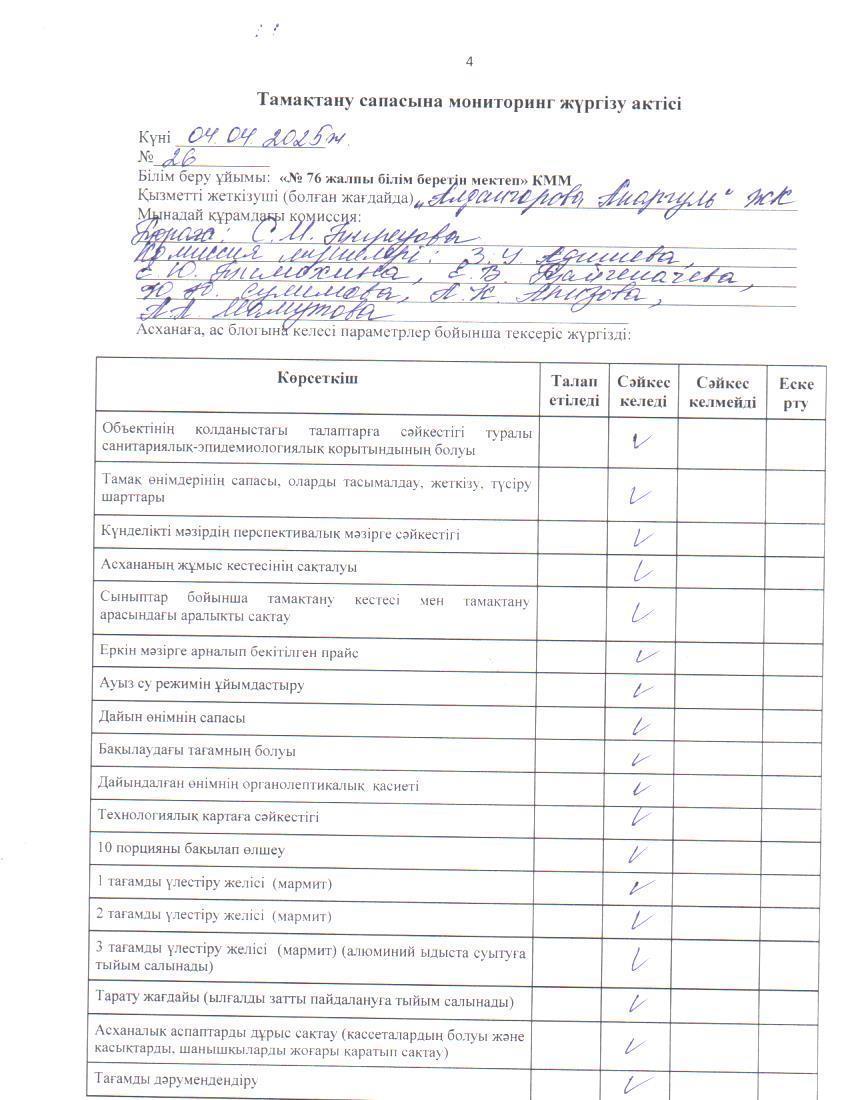 4
Тамақтану сапасына мониторинг жүргізу актісі
Күні 04.04.2025ж.
№ 26
Білім беру ұйымы: «№ 76 жалпы білім беретін мектеп» КММ
Қызметті жеткізуші (болған жағдайда) „Алдангорова Анаргуль" жк
Мынадай құрамдағы комиссия:
Төраға: С.М.
Комиссия мүшелері: З.У.
Е.Ю. Тимохина, Е.В.
Сулимова, А.К.
А.А. Мамутова
Асханаға, ас блогына келесі параметрлер бойынша тексеріс жүргізді:
Көрсеткіш Талап етіледі Сәйкес келеді Сәйкес келмейді Ескерту
Объектінің қолданыстағы талаптарға сәйкестігі туралы
санитариялық-эпидемиологиялық қорытындының болуы
Тамақ өнімдерінің сапасы, оларды тасымалдау, жеткізу, түсіру
шарттары
Күнделікті мәзірдің перспективалық мәзірге сәйкестігі
Асхананың жұмыс кестесінің сақталуы
Сыныптар бойынша тамақтану кестесі мен тамақтану
арасындағы аралықты сақтау
Еркін мәзірге арналып бекітілген прайс
Ауыз су режимін ұйымдастыру
Дайын өнімнің сапасы
Бақылаудағы тағамның болуы
Дайындалған өнімнің органолептикалық қасиеті
Технологиялық картаға сәйкестігі
10 порцияны бақылап өлшеу
1 тағамды үлестіру желісі (мармит)
2 тағамды үлестіру желісі (мармит)
3 тағамды үлестіру желісі (мармит) (алюминий ыдыста суытуға
тыйым салынады)
Тарату жағдайы (ылғалды затты пайдалануға тыйым салынады)
Асханалық аспаптарды дұрыс сақтау (кассеталардың болуы және
қасықтарды, шанышқыларды жоғары қаратып сақтау)
Тағамды дәрумендендіру